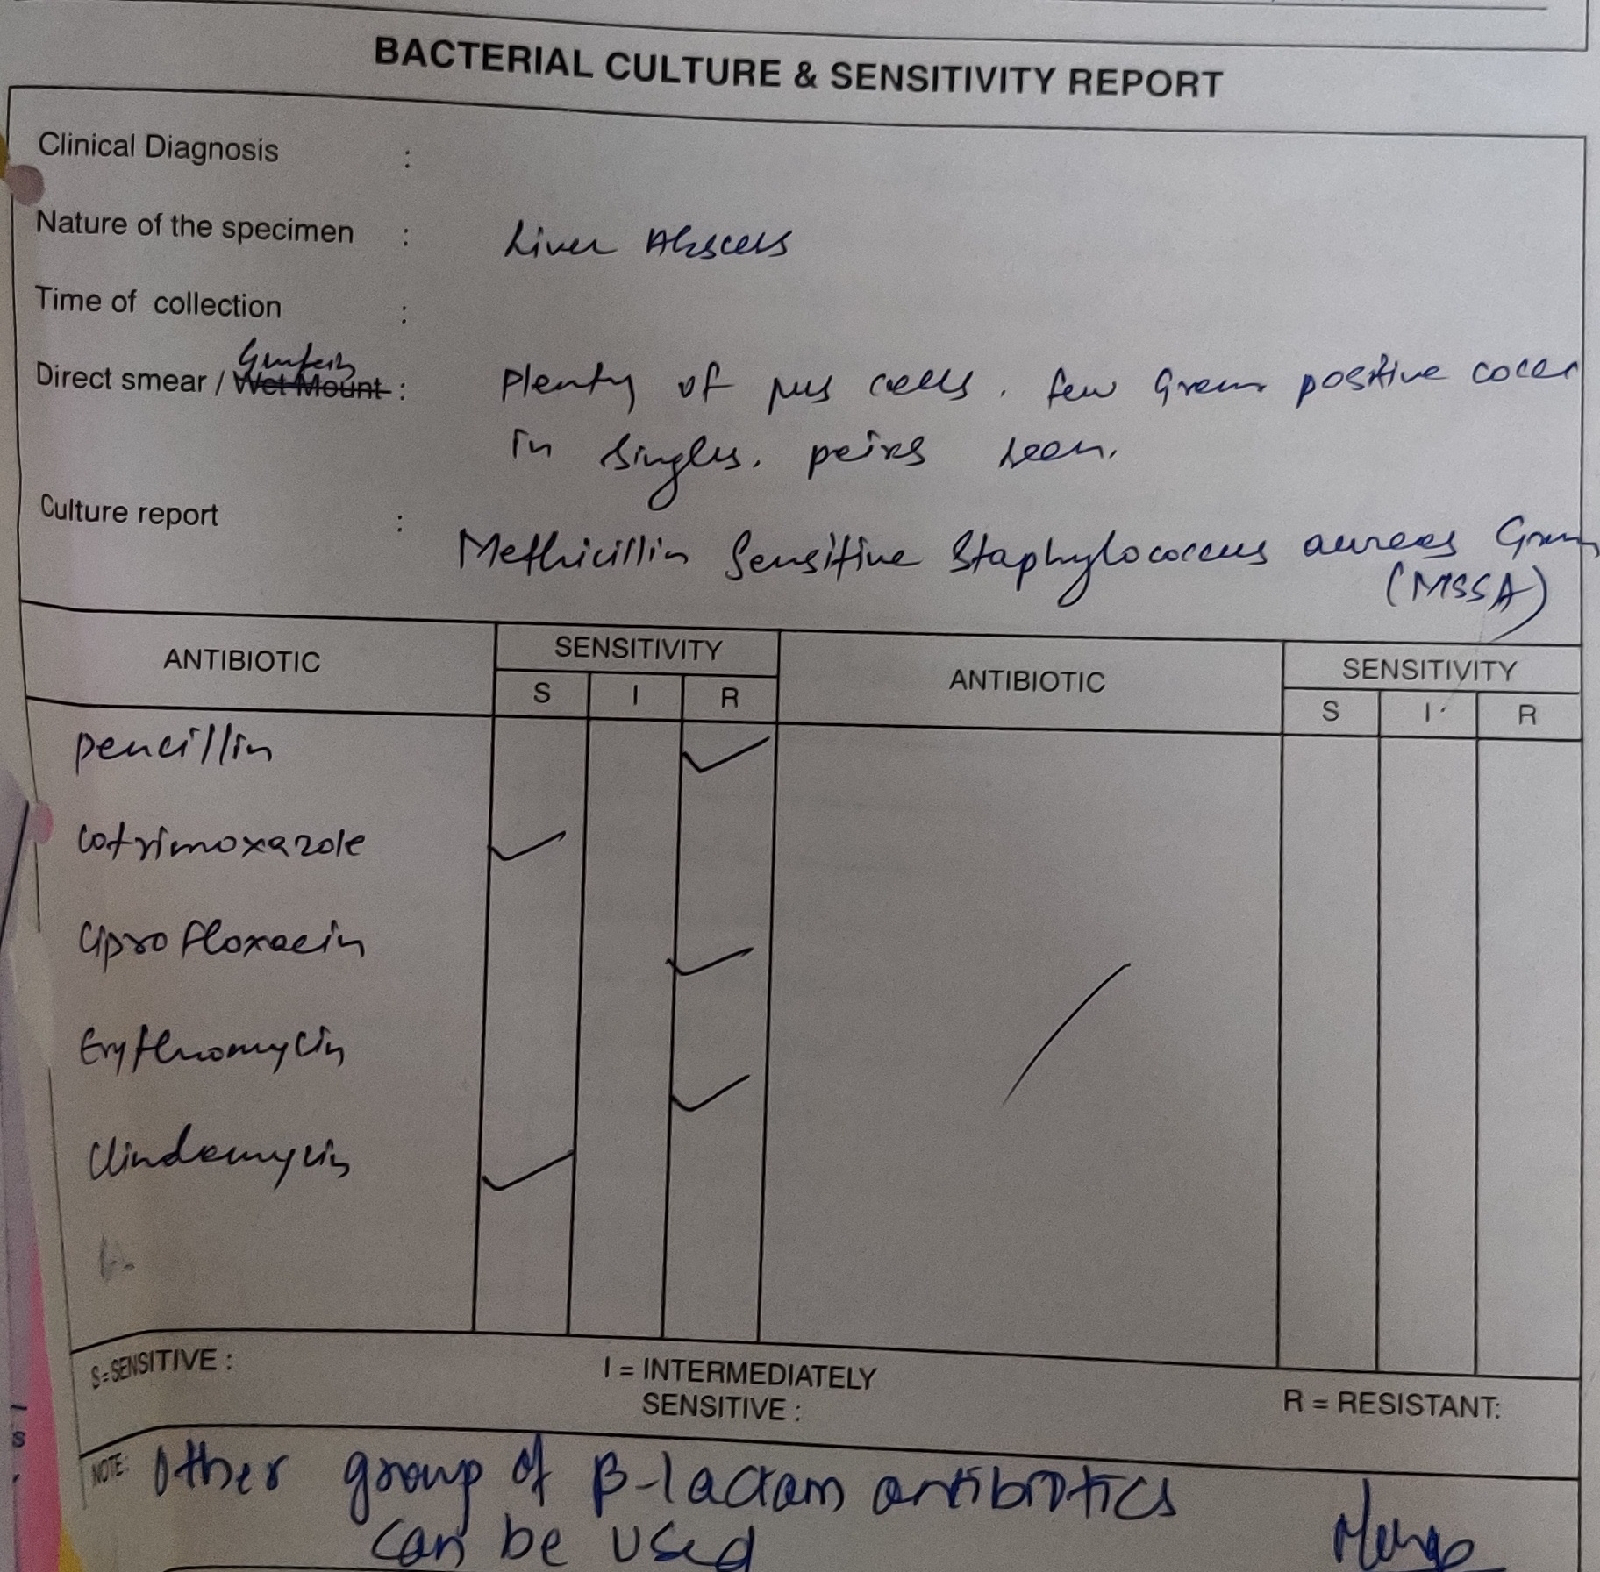 BACTERIAL CULTURE & SENSITIVITY REPORT
Clinical Diagnosis :
Nature of the specimen : Liver Abscess
Time of collection :
Direct smear / Wet Mount : Plenty of pus cells. few Gram positive cocci
in singles. peirs seen.
Culture report :
Methicillin Sensitive Staphylococcus aureus
(MSSA)
ANTIBIOTIC SENSITIVITY ANTIBIOTIC SENSITIVITY
S I R S I R
pencillin
cotrimoxazole
ciprofloxacin
Erythromycin
Clindamycin
S=SENSITIVE : I = INTERMEDIATELY R = RESISTANT:
SENSITIVE :
NOTE: Other group of β-lactam antibiotics
can be used